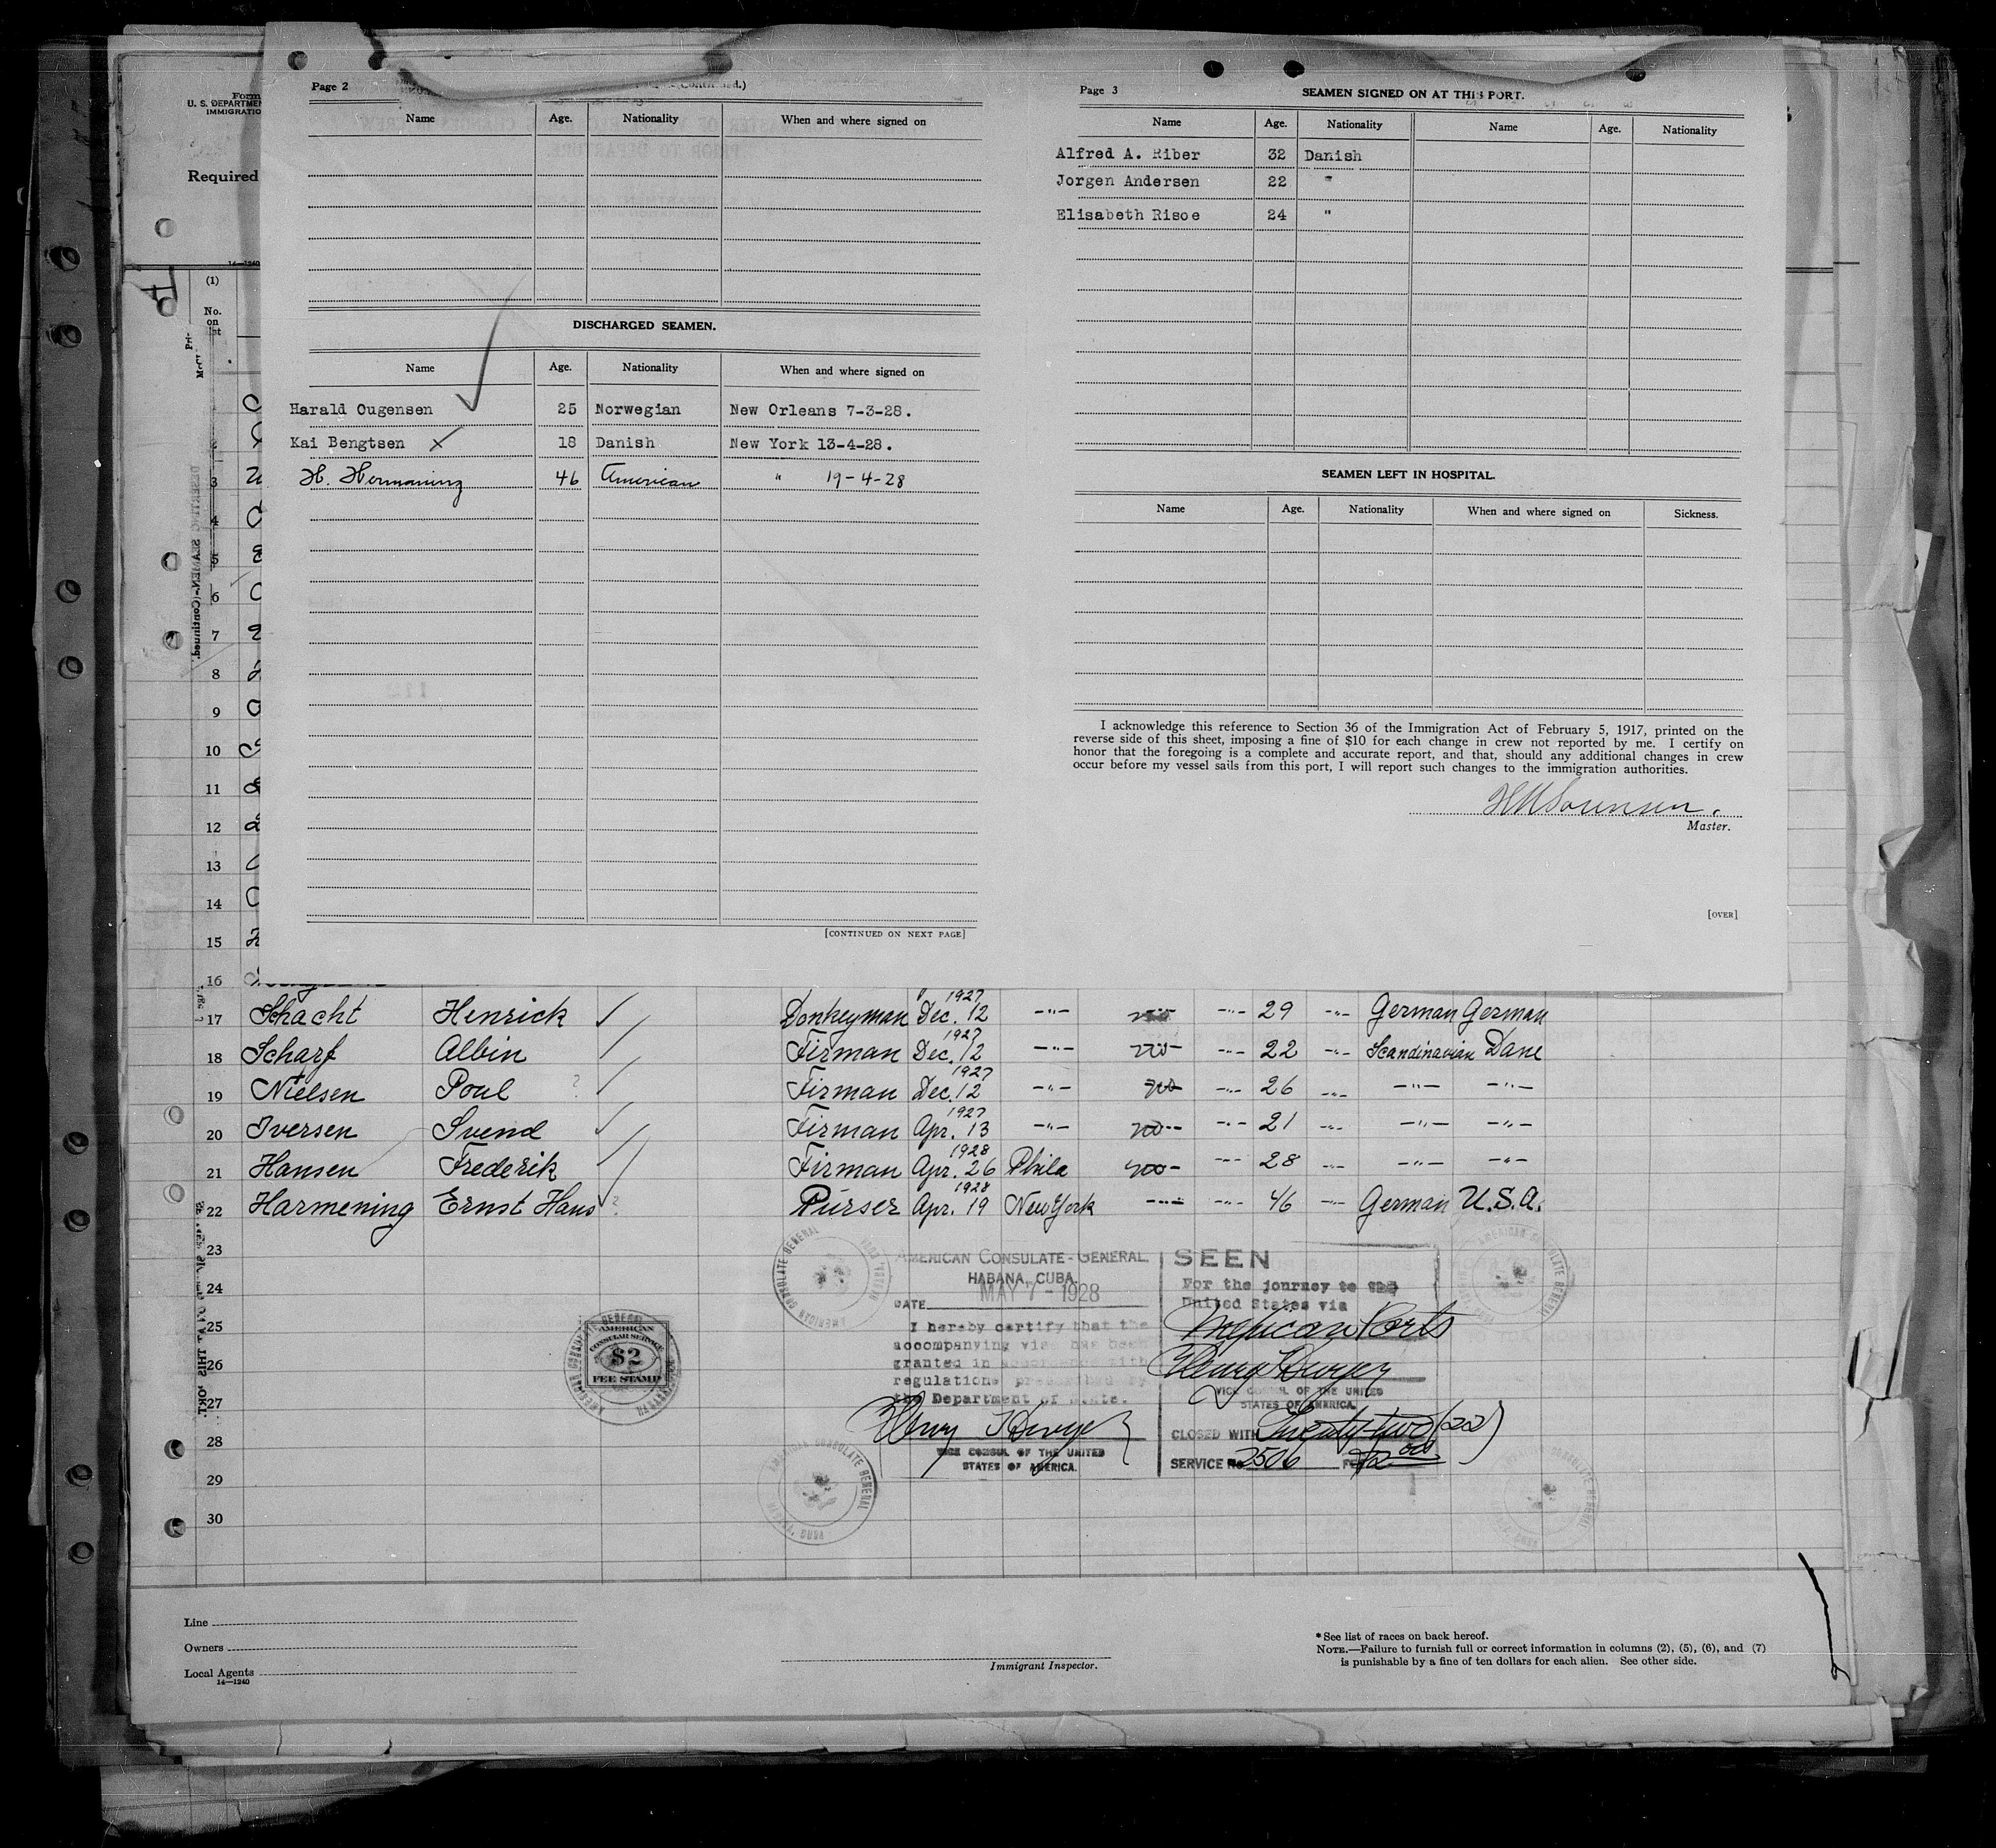 Form
U. S. DEPARTMEN
IMMIGRATIO
Required
14—1240
(1)
No.
on
list
Page 2
Name Age. Nationality When and where signed on
DISCHARGED SEAMEN.
Name Age. Nationality When and where signed on
Harald Ougensen 25 Norwegian New Orleans 7-3-28.
Kai Bengtsen x 18 Danish New York 13-4-28.
H. Hermaning 46 American " 19-4-28
[CONTINUED ON NEXT PAGE]
Page 3 SEAMEN SIGNED ON AT THIS PORT.
Name Age. Nationality Name Age. Nationality
Alfred A. Riber 32 Danish
Jorgen Andersen 22 "
Elisabeth Risoe 24 "
SEAMEN LEFT IN HOSPITAL.
Name Age. Nationality When and where signed on Sickness.
I acknowledge this reference to Section 36 of the Immigration Act of February 5, 1917, printed on the
reverse side of this sheet, imposing a fine of $10 for each change in crew not reported by me. I certify on
honor that the foregoing is a complete and accurate report, and that, should any additional changes in crew
occur before my vessel sails from this port, I will report such changes to the immigration authorities.
HM Sorensen.
Master.
[OVER]
DESERTING SEAMEN—(Continued.)
3
4
5
6
7
8
9
10
11
12
13
14
15
16
17 Schacht Henrick Donkeyman Dec. 12 1927 -"- -"- 29 -"- German German
18 Scharf Albin Firman Dec. 12 1927 -"- no -"- 22 -"- Scandinavian Dane
19 Nielsen Poul ? Firman Dec. 12 1927 -"- no -"- 26 -"- -"- -"-
20 Iversen Svend Firman Apr. 13 1927 -"- no -"- 21 -"- -"- -"-
21 Hansen Frederik Firman Apr. 26 1928 Phila no -"- 28 -"- -"- -"-
22 Harmening Ernst Hans ? Purser Apr. 19 1928 New York -"- -"- 46 -"- German U.S.A.
23
24
25
26
27
28
29
30
AMERICAN CONSULATE GENERAL HABANA, CUBA
AMERICAN CONSULATE-GENERAL.
HABANA, CUBA.
MAY 7 - 1928
DATE
I hereby certify that the
accompanying visa has been
granted in accordance with
regulations prescribed by
the Department of State.
Henry T Dwyer
VICE CONSUL OF THE UNITED
STATES OF AMERICA.
SEEN
For the journey to the
United States via
Mexican Ports
Henry T Dwyer
VICE CONSUL OF THE UNITED
STATES OF AMERICA.
CLOSED WITH Twenty-two (22)
SERVICE No. 2506 FEE $2.00
AMERICAN
CONSULAR SERVICE
$2
FEE STAMP
AMERICAN CONSULATE GENERAL
Line
Owners
Local Agents
14—1240
Immigrant Inspector.
* See list of races on back hereof.
NOTE.—Failure to furnish full or correct information in columns (2), (5), (6), and (7)
is punishable by a fine of ten dollars for each alien. See other side.